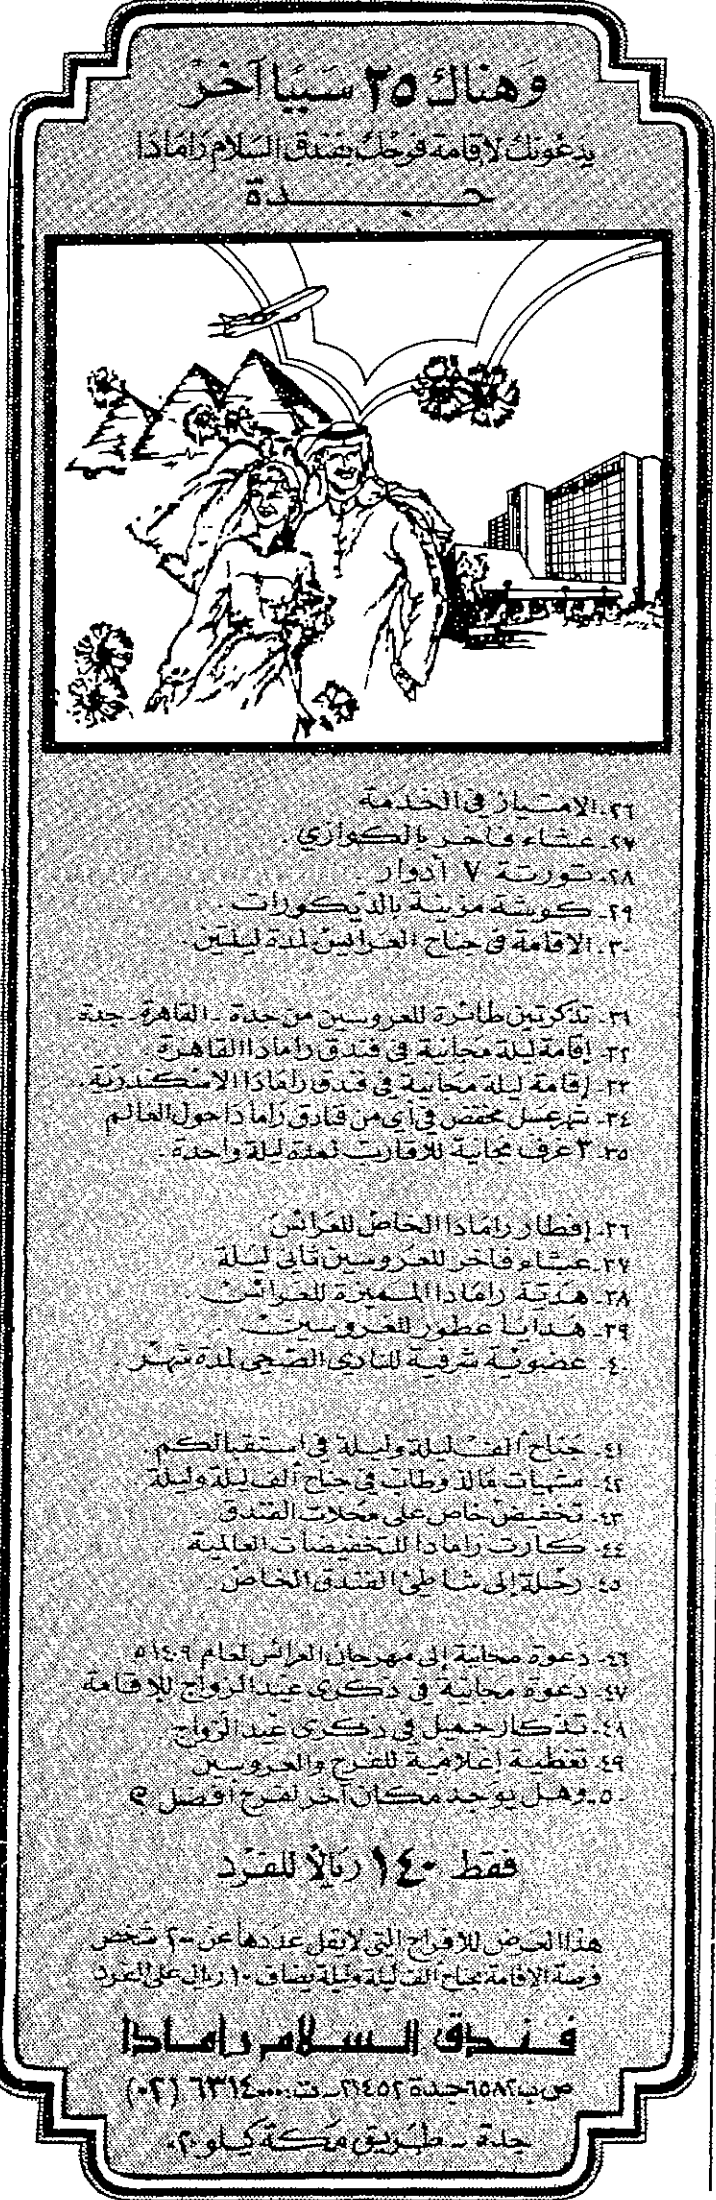 وهناك ٢٥ سببا آخر
يدعونك لاقامة فرحك بفندق السلام رامادا
جدة
٢٦- الامتياز في الخدمة
٢٧- عشاء فاخر بالكوازي .
٢٨- تورتة ٧ أدوار .
٢٩- كوشة مزينة بالديكورات .
٣٠- الاقامة في جناح العرائس لمدة ليلتين .
٣١- تذكرتين طائرة للعروسين من جدة - القاهرة - جدة
٣٢- إقامة ليلة مجانية في فندق رامادا القاهرة .
٣٣- إقامة ليلة مجانية في فندق رامادا الاسكندرية .
٣٤- شهر عسل مخفض في أي من فنادق رامادا حول العالم
٣٥- ٣ غرف مجانية للأقارب لمدة ليلة واحدة .
٣٦- إفطار رامادا الخاص للعرائس
٣٧- عشاء فاخر للعروسين ثاني ليلة .
٣٨- هدية رامادا المميزة للعرائس .
٣٩- هدايا عطور للعروسين .
٤٠- عضوية شرفية للنادي الصحي لمدة شهر .
٤١- جناح ألف ليلة وليلة في استقبالكم .
٤٢- مشهيات مالذ وطاب في جناح ألف ليلة وليلة
٤٣- تخفيض خاص على محلات الفندق .
٤٤- كارت رامادا للتخفيضات العالمية
٤٥- رحلة إلى شاطئ الفندق الخاص .
٤٦- دعوة مجانية إلى مهرجان العرائس لعام ١٤٠٩ ه
٤٧- دعوة مجانية في ذكرى عيد الزواج للإقامة
٤٨- تذكار جميل في ذكرى عيد الزواج .
٤٩- تغطية إعلامية للفرح والعروسين
٥٠- وهل يوجد مكان آخر لفرح أفضل ؟
فقط ١٤٠ ريالا للفرد
هذا العرض للافراح التي لا يقل عددها عن ٢٠٠ شخص
فرصة الاقامة بجناح ألف ليلة وليلة يضاف ١٠ ريال على الفرد
فندق السلام رامادا
ص ب ٦٥٨٢ جدة ٢١٤٥٢ - ت: ٦٣١٤٠٠٠ (٠٢)
جدة - طريق مكة كيلو ٢٠